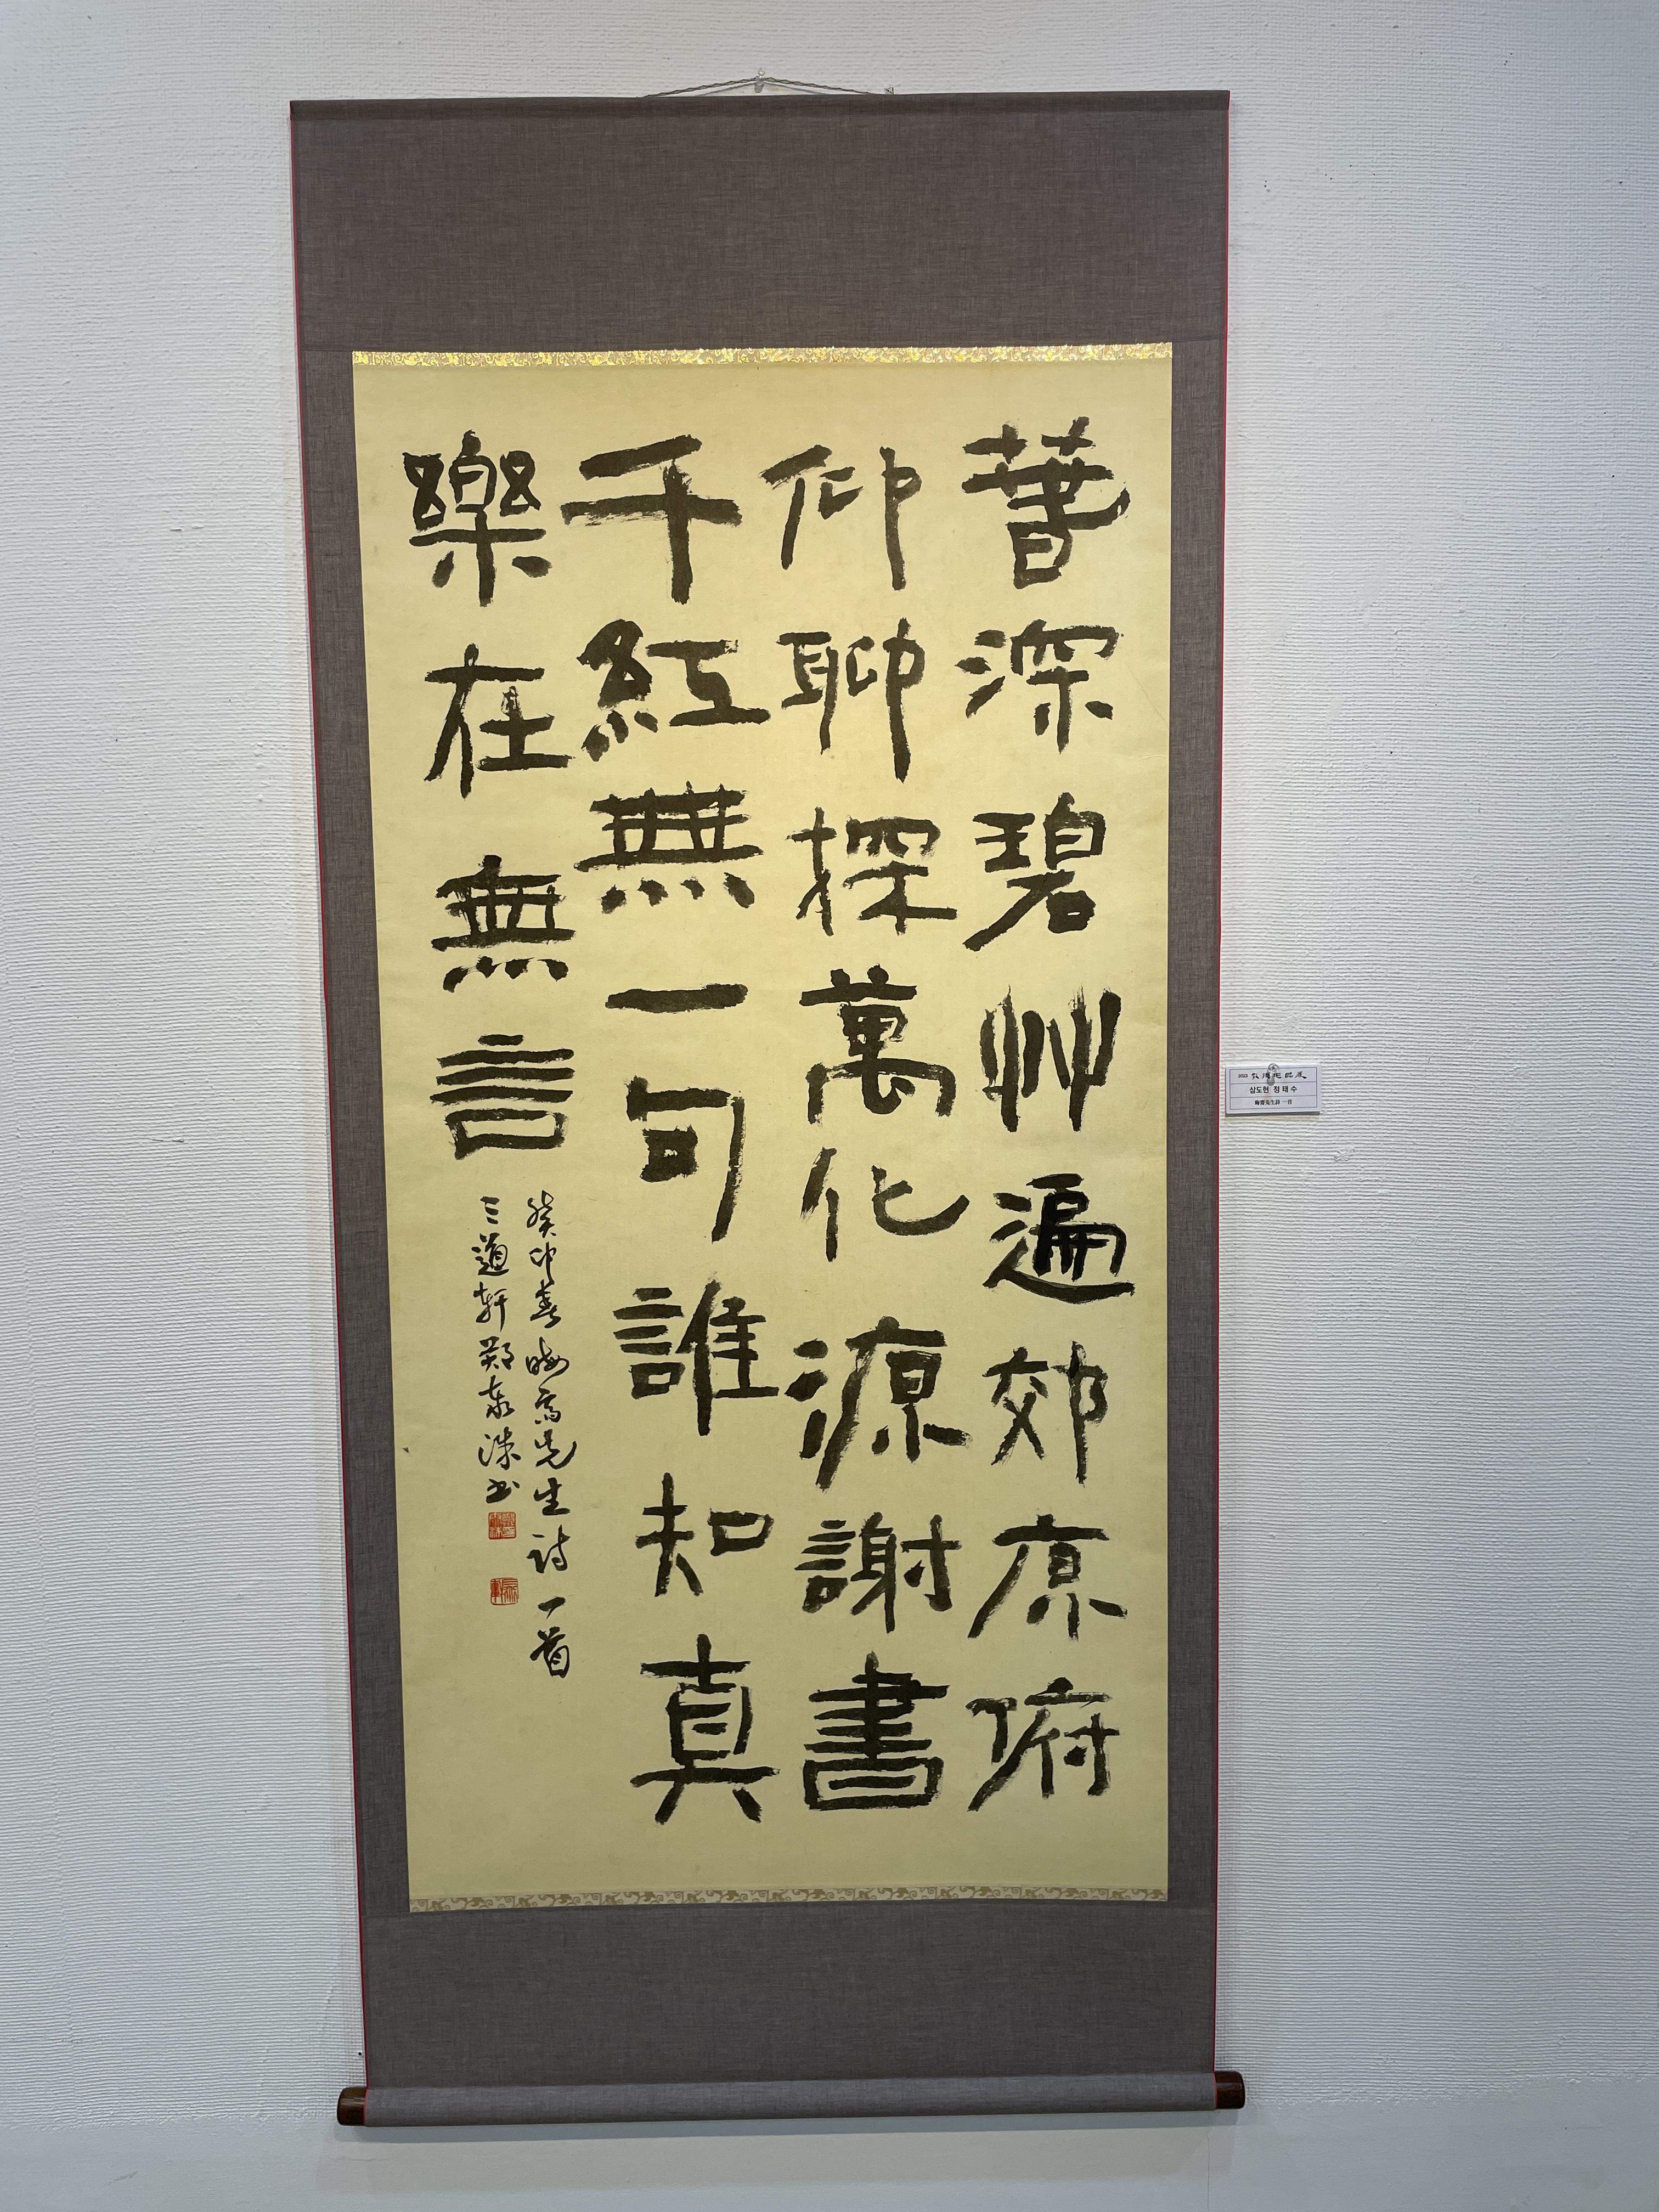 春深碧艸遍郊原俯
仰聊探萬化源謝書
千紅無一句誰知真
樂在無言
癸卯春晦齋先生詩一首
三道軒鄭泰洙書
2023
삼도헌 정태수
晦齋先生詩 一首